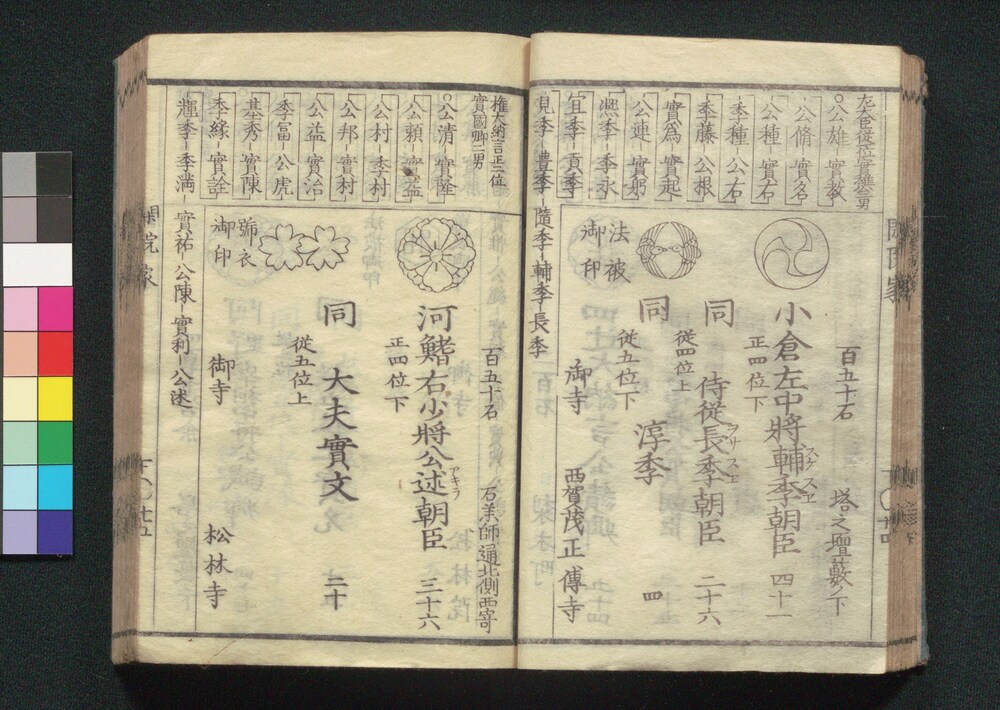 左大臣従一位實雄公男
公雄-實教
公脩-實名
公種-實右
季種-公右
季藤-公根
實爲-實起
公連-實躬
凞季-季永
宜季-貢季
見季-豊季-隨季-輔季-長季
百五十石
塔之壇藪ノ下
小倉左中將輔季朝臣
スケスヱ
四十一
正四位下
同
侍従長季朝臣
ヲサスヱ
二十六
従四位上
同
淳季
四
従五位下
法被
御印
御寺
西賀茂正傳寺
閑院家
權大納言正二位
實國卿二男
公清-實隆
公頼-實益
公村-季村
公邦-實村
公益-實治
季富-公虎
基秀-實陳
季縁-實詮
輝季-季満-實祐-公陳-實利-公述
百五十石
石薬師通北側西寄
河鰭右少將公述朝臣
アキラ
三十六
正四位下
同
大夫實文
二十
従五位上
號衣
御印
御寺
松林寺
閑院家